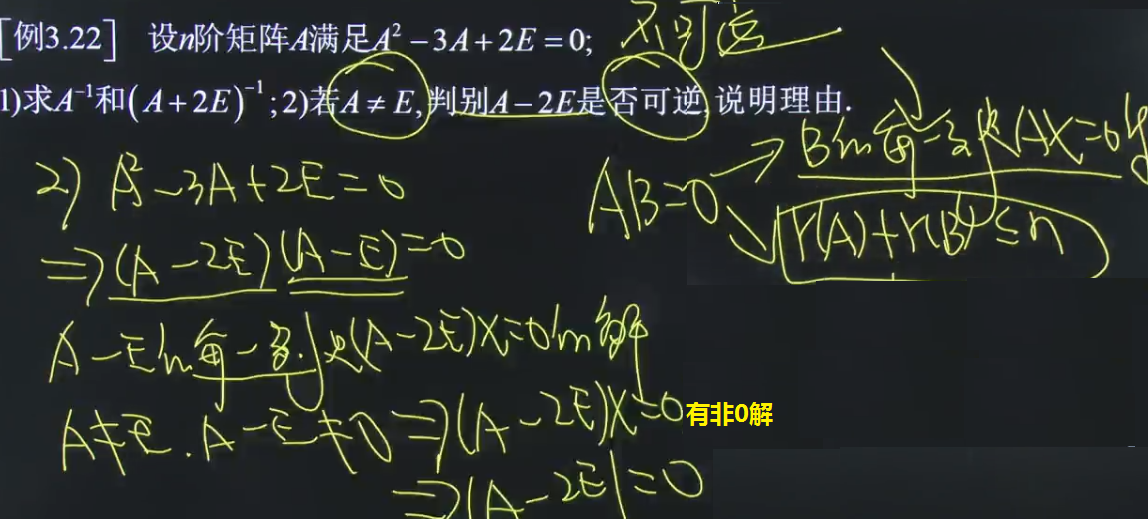 [例3.22] 设n阶矩阵A满足A²-3A+2E=0; 不可逆
1)求A⁻¹和(A+2E)⁻¹;2)若A≠E,判别A-2E是否可逆,说明理由.
2) A²-3A+2E=0
⇒(A-2E)(A-E)=0
AB=0
B的每一列是AX=0的
r(A)+r(B)≤n
A-E的每一列是(A-2E)X=0的解
A≠E. A-E≠0⇒(A-2E)X=0有非0解
⇒|A-2E|=0